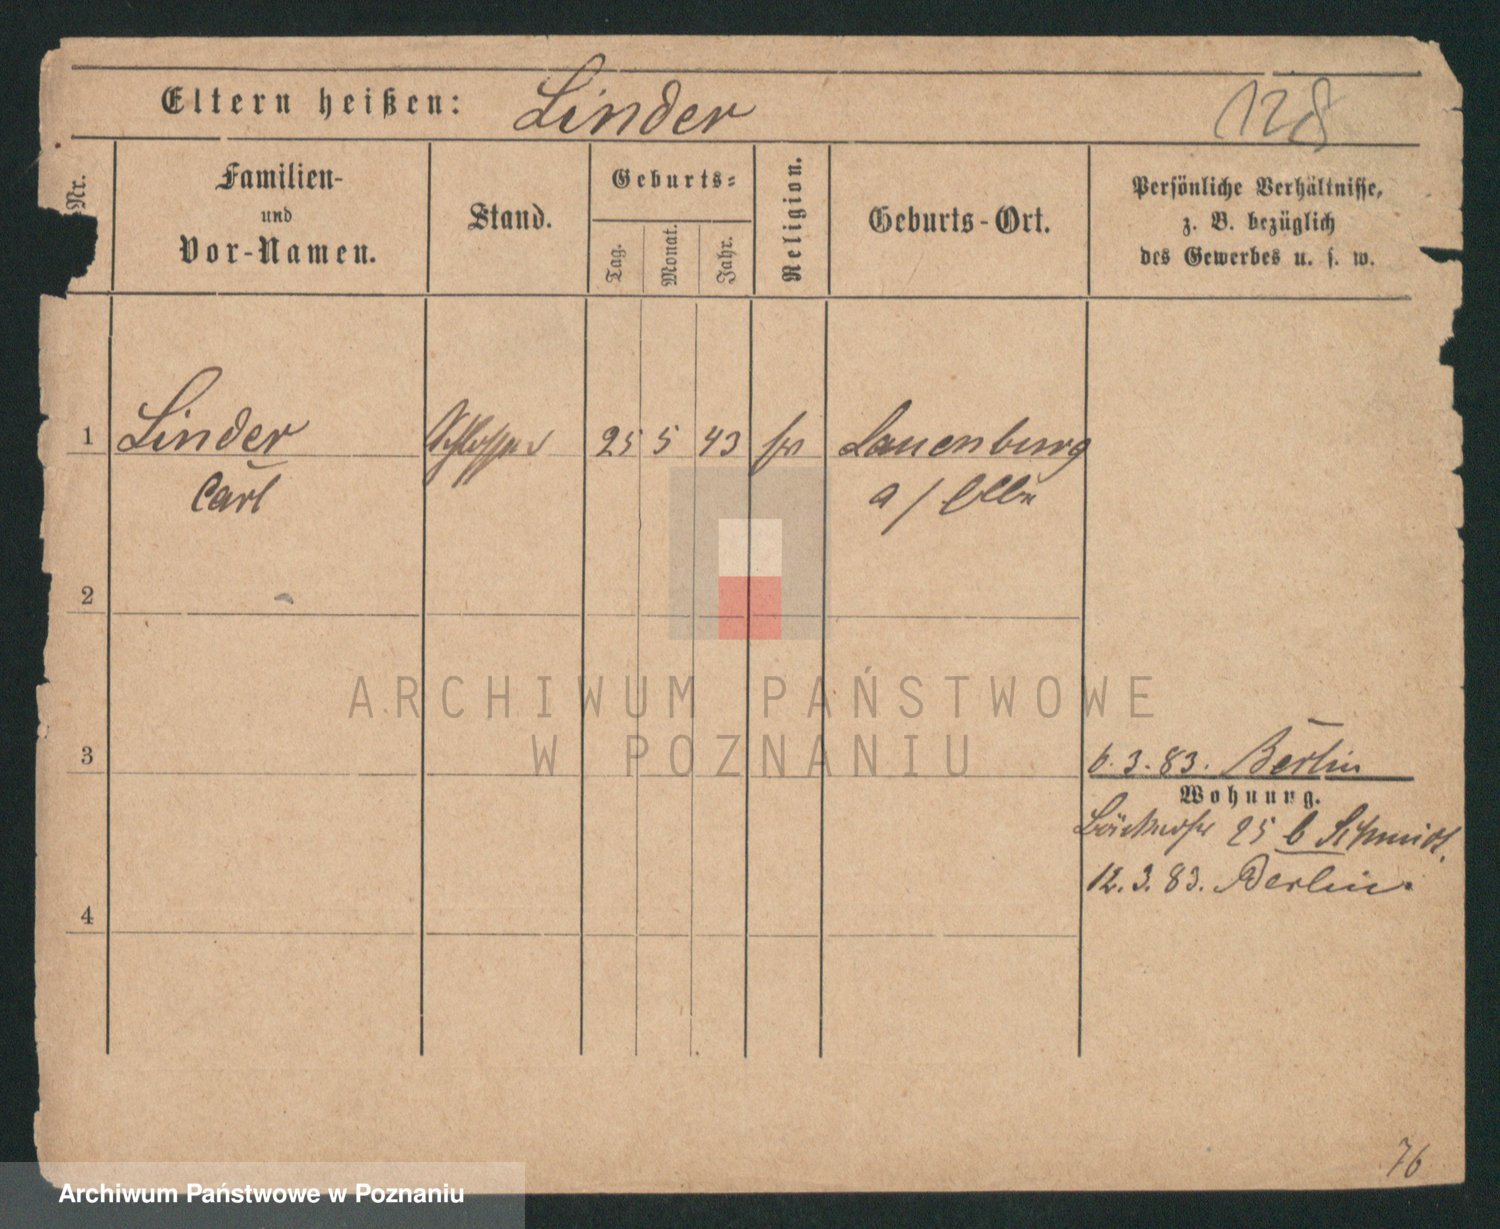 Eltern heißen: Linder 128
Nr.
Familien-
und
Vor-Namen.
Stand.
Geburts-
Tag.
Monat.
Jahr.
Religion.
Geburts-Ort.
Persönliche Verhältnisse,
z. B. bezüglich
des Gewerbes u. s. w.
1 Linder Schlosser 25 5 43 Lauenburg
Carl a/Elbe
2
ARCHIWUM PAŃSTWOWE
W POZNANIU
3
6.3.83. Berlin
Wohnung.
25 b Schmidt.
12.3.83. Berlin.
4
76
Archiwum Państwowe w Poznaniu